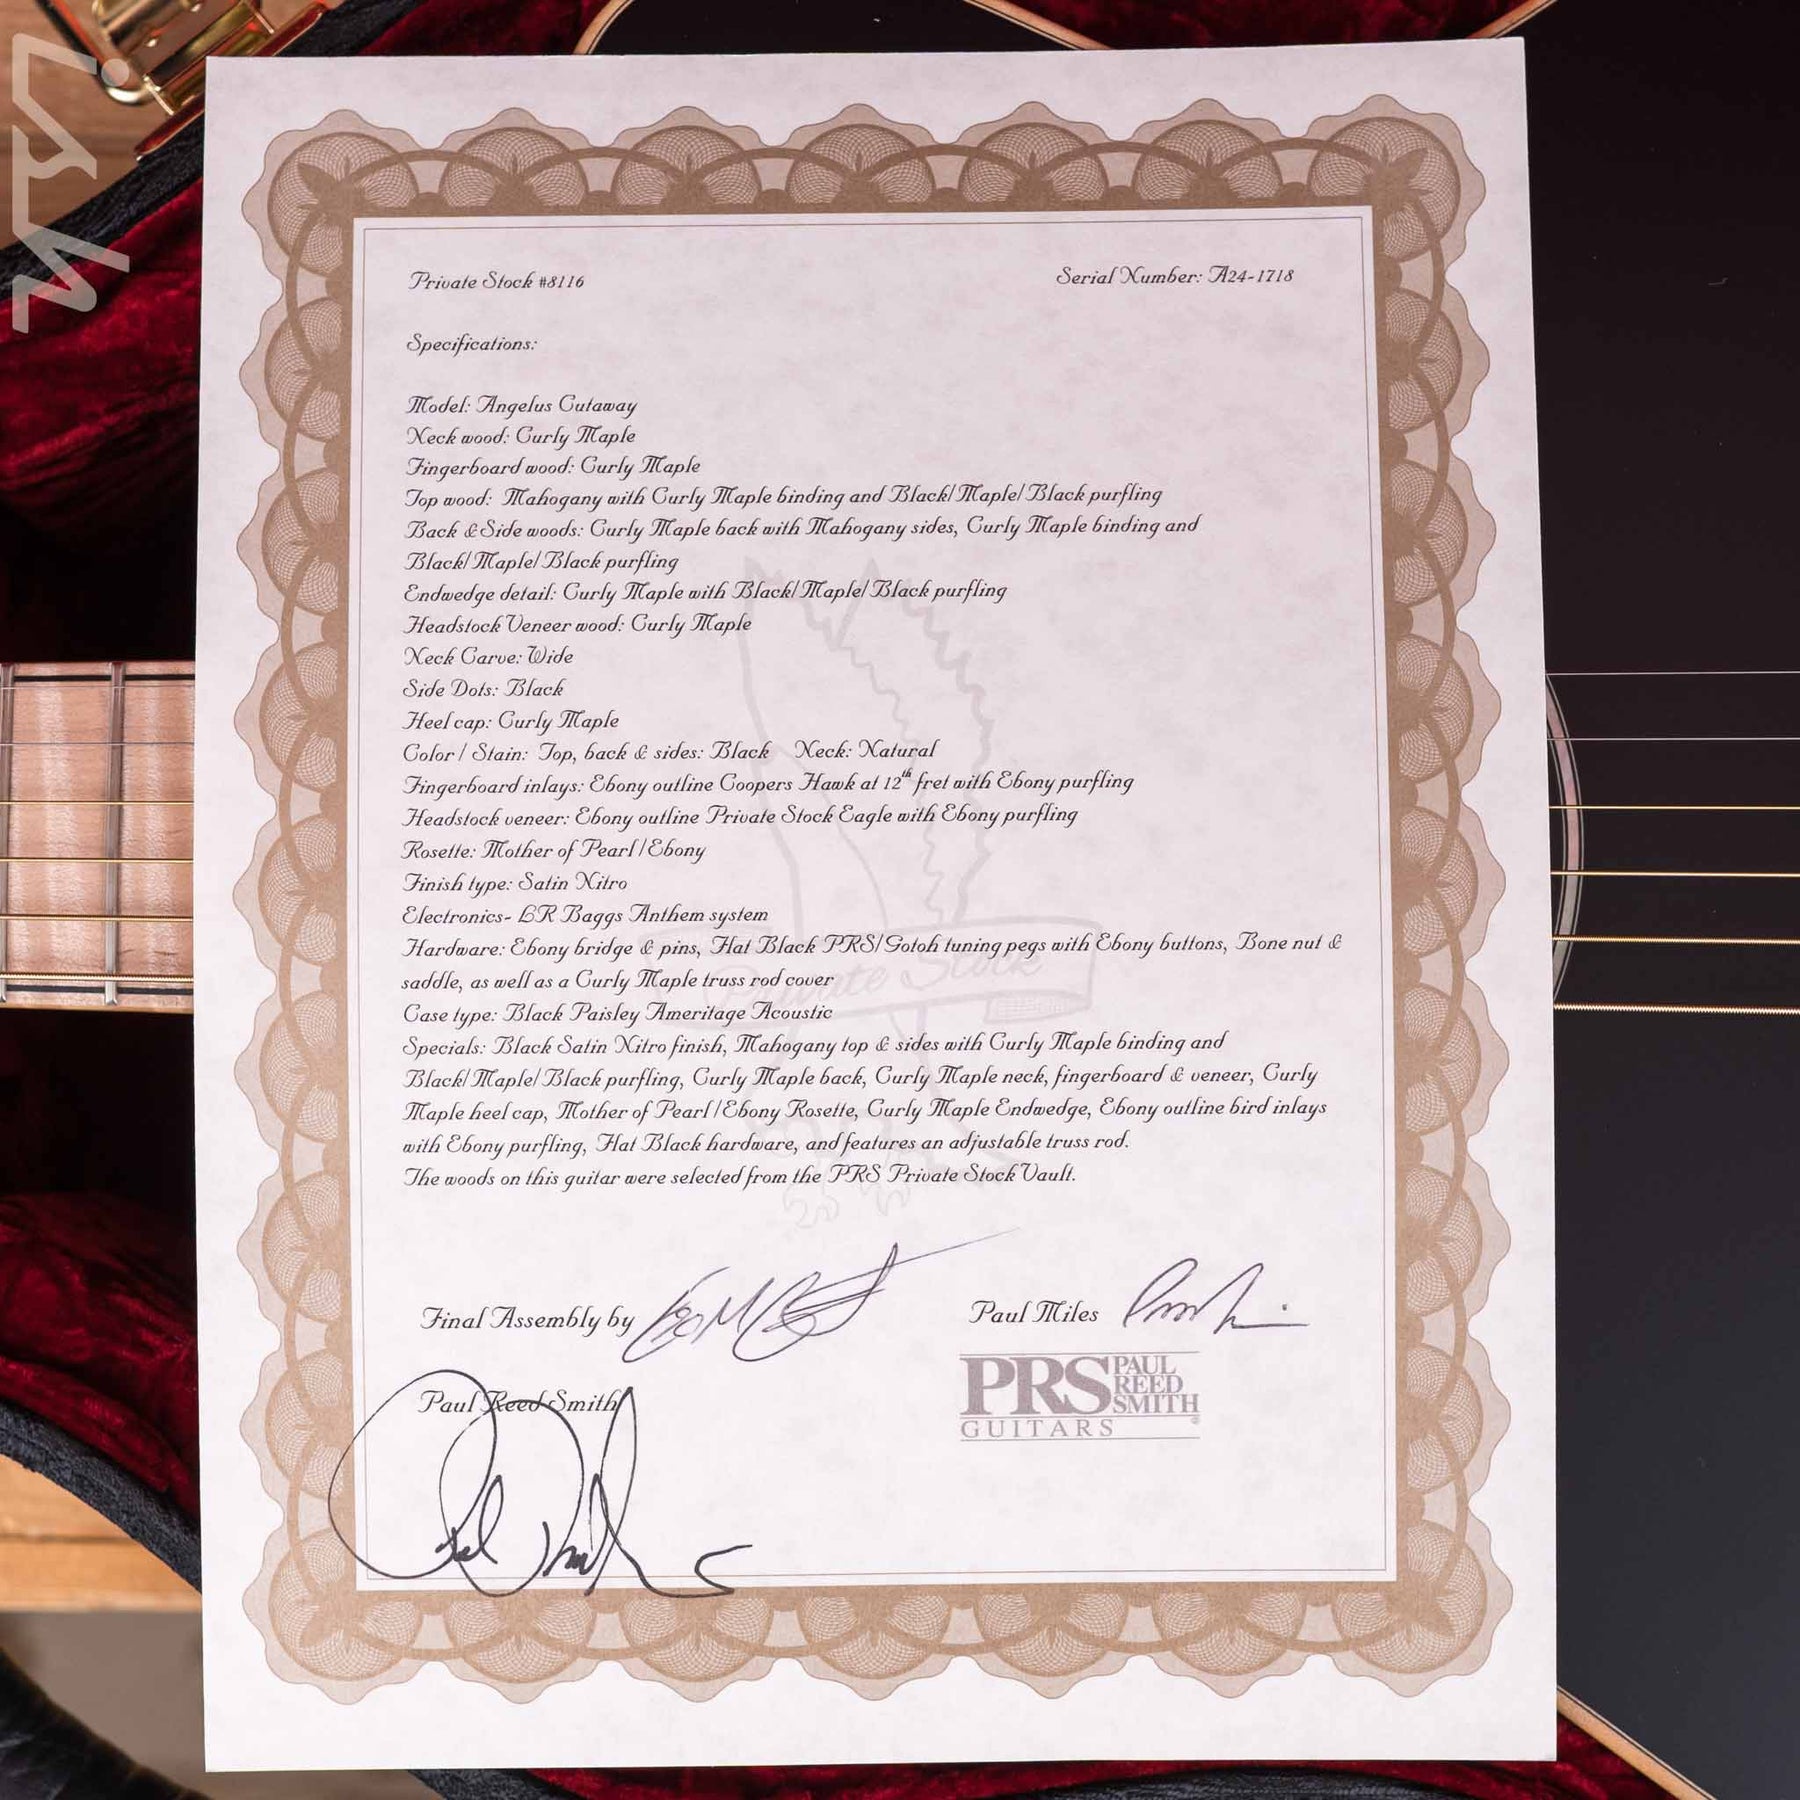 Private Stock #8116
Serial Number: A24-1718
Specifications:
Model: Angelus Cutaway
Neck wood: Curly Maple
Fingerboard wood: Curly Maple
Top wood: Mahogany with Curly Maple binding and Black/Maple/Black purfling
Back & Side woods: Curly Maple back with Mahogany sides, Curly Maple binding and
Black/Maple/Black purfling
Endwedge detail: Curly Maple with Black/Maple/Black purfling
Headstock Veneer wood: Curly Maple
Neck Carve: Wide
Side Dots: Black
Heel cap: Curly Maple
Color / Stain: Top, back & sides: Black Neck: Natural
Fingerboard inlays: Ebony outline Coopers Hawk at 12th fret with Ebony purfling
Headstock veneer: Ebony outline Private Stock Eagle with Ebony purfling
Rosette: Mother of Pearl / Ebony
Finish type: Satin Nitro
Electronics- LR Baggs Anthem system
Hardware: Ebony bridge & pins, Flat Black PRS/Gotoh tuning pegs with Ebony buttons, Bone nut &
saddle, as well as a Curly Maple truss rod cover
Case type: Black Paisley Ameritage Acoustic
Specials: Black Satin Nitro finish, Mahogany top & sides with Curly Maple binding and
Black/Maple/Black purfling, Curly Maple back, Curly Maple neck, fingerboard & veneer, Curly
Maple heel cap, Mother of Pearl / Ebony Rosette, Curly Maple Endwedge, Ebony outline bird inlays
with Ebony purfling, Flat Black hardware, and features an adjustable truss rod.
The woods on this guitar were selected from the PRS Private Stock Vault.
Private Stock
Final Assembly by
Paul Miles
Paul Reed Smith
PRS PAUL REED SMITH
GUITARS